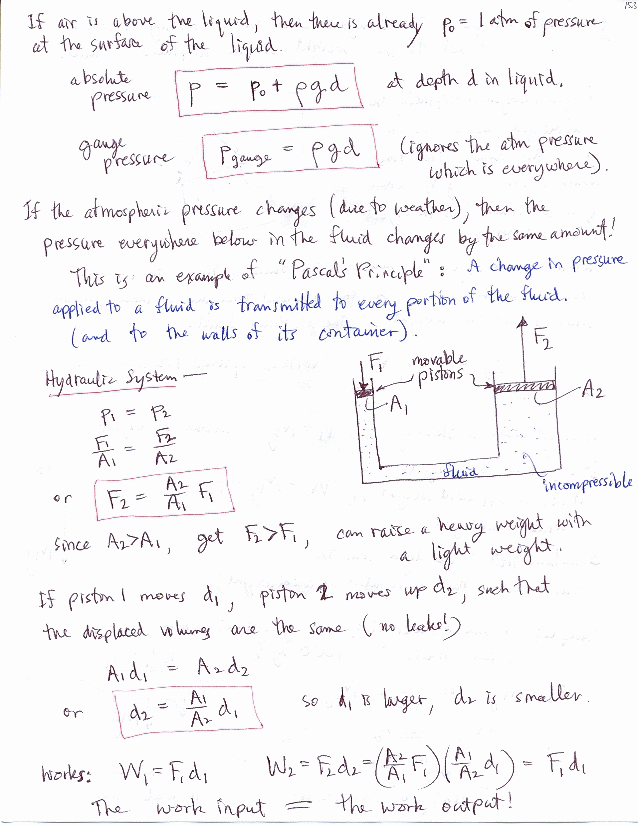 153
If air is above the liquid, then there is already p₀ = 1 atm of pressure
at the surface of the liquid.
absolute pressure p = p₀ + ρgd at depth d in liquid.
gauge pressure Pgauge = ρgd (ignores the atm pressure
which is everywhere).
If the atmospheric pressure changes (due to weather), then the
pressure everywhere below in the fluid changes by the same amount!
This is an example of "Pascal's Principle": A change in pressure
applied to a fluid is transmitted to every portion of the fluid.
(and to the walls of its container).
Hydraulic System —
P₁ = P₂
F₁/A₁ = F₂/A₂
or F₂ = A₂/A₁ F₁
F₁
movable pistons
F₂
A₁
A₂
fluid
incompressible
since A₂>A₁, get F₂>F₁, can raise a heavy weight with
a light weight.
If piston 1 moves d₁, piston 2 moves up d₂, such that
the displaced volumes are the same (no leaks!)
A₁d₁ = A₂d₂
or d₂ = A₁/A₂ d₁ so d₁ is larger, d₂ is smaller.
Works: W₁ = F₁d₁ W₂ = F₂d₂ = (A₂/A₁ F₁)(A₁/A₂ d₁) = F₁d₁
The work input = the work output!